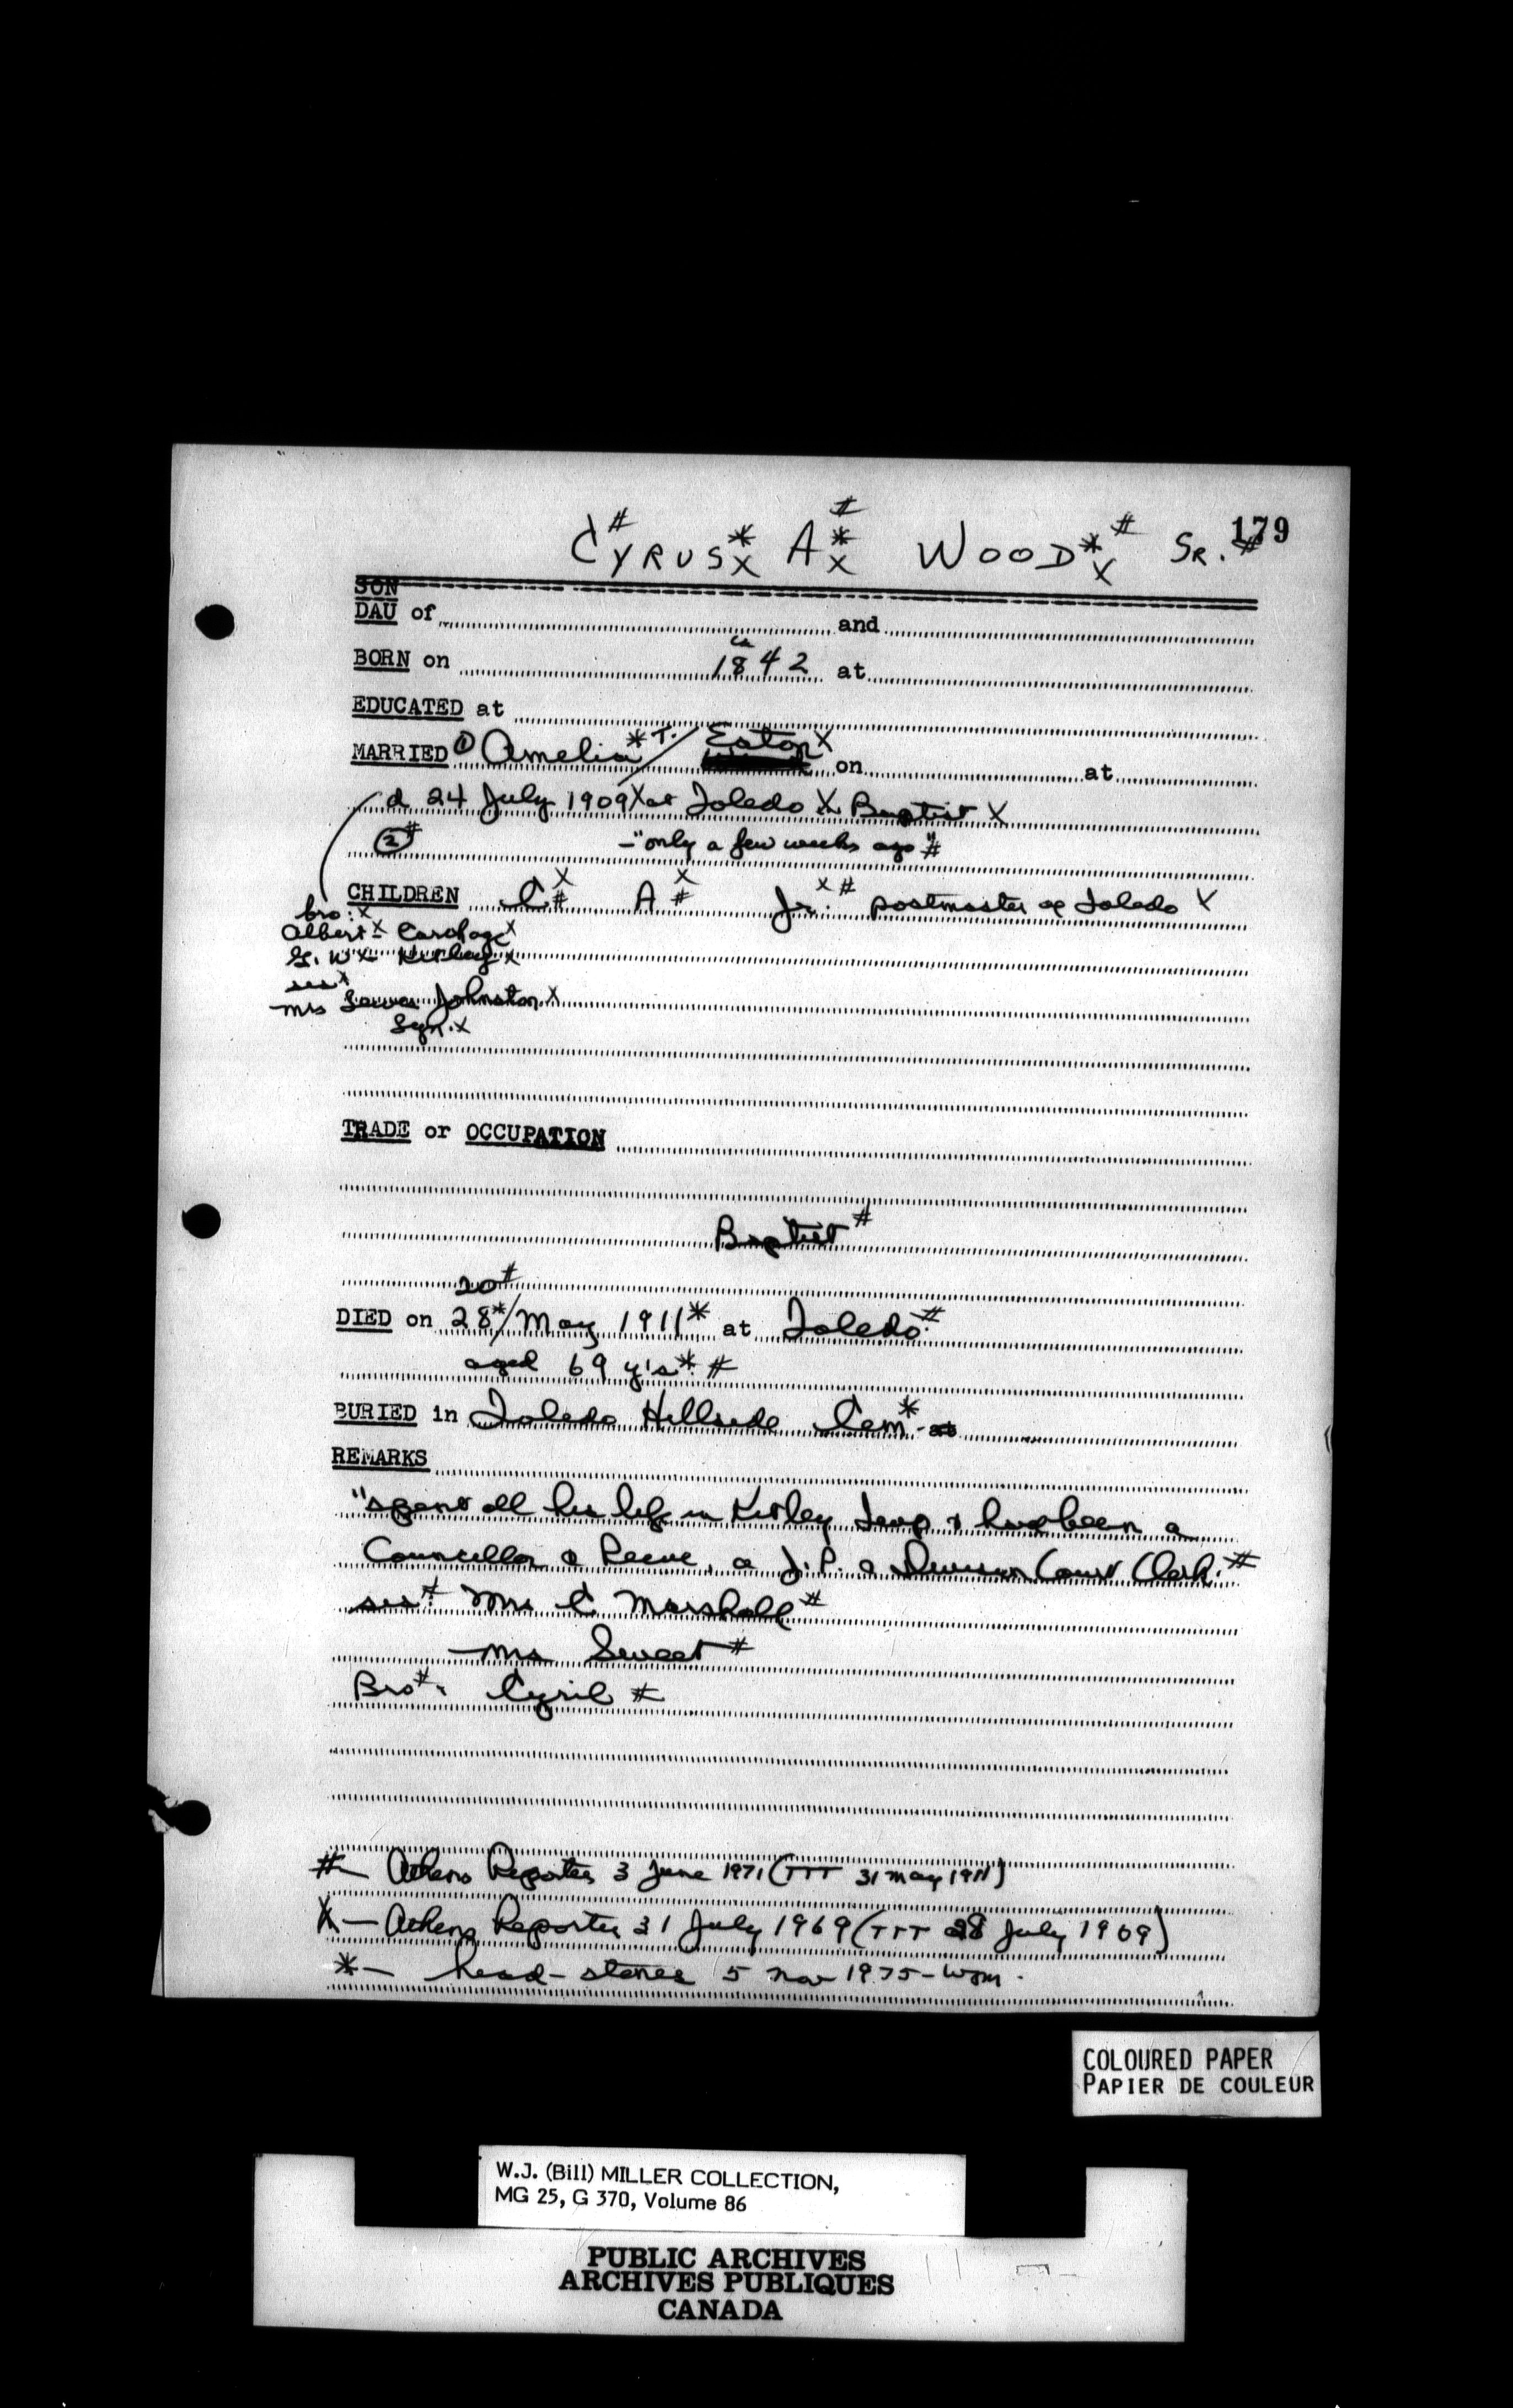 179
CYRUS#*X A#*X WOOD*#X SR.#
SON
DAU of and
BORN on ca 1842 at
EDUCATED at
MARRIED ① Amelia* T./ Eaton X on at
d 24 July 1909 X at Toledo X Baptist X
②# - "only a few weeks ago"#
CHILDREN C X# A X# Jr. X# postmaster of Toledo X
bro: X
Albert X - Carthage X
G. W X - Kitley X
sis X
Mrs Johnston X
Syn. X
TRADE or OCCUPATION
Baptist #
20#
DIED on 28*/May 1911* at Toledo #
aged 69 y's * #
BURIED in Toledo Hillside Cem* - at
REMARKS
"spent all his life in Kitley Twp & had been a
Councellor & Reeve, a J.P. & Division Court Clerk. #
sis # Mrs C. Marshall #
Mrs Sweet #
Bro #: Cyril #
# - Athens Reporter 3 June 1971 (TTT 31 May 1911)
X - Athens Reporter 31 July 1969 (TTT 28 July 1909)
* - head-stones 5 Nov 1975 - WJM.
COLOURED PAPER
PAPIER DE COULEUR
W.J. (Bill) MILLER COLLECTION,
MG 25, G 370, Volume 86
PUBLIC ARCHIVES
ARCHIVES PUBLIQUES
CANADA